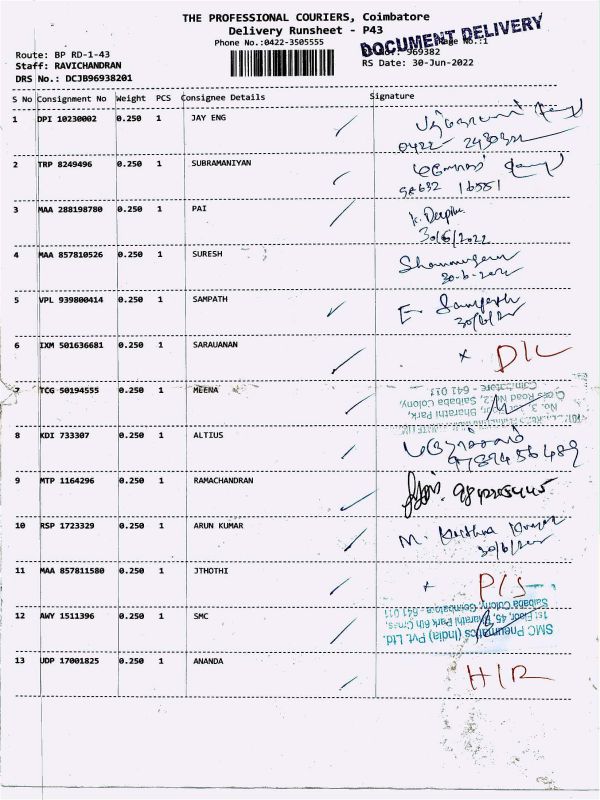 THE PROFESSIONAL COURIERS, Coimbatore
Delivery Runsheet - P43
Phone No.:0422-3505555
DOCUMENT DELIVERY
969382
RS Date: 30-Jun-2022
Route: BP RD-1-43
Staff: RAVICHANDRAN
DRS No.: DCJB96938201
S No Consignment No Weight PCS Consignee Details Signature
1 DPI 10230002 0.250 1 JAY ENG
0422 2430322
2 TRP 8249496 0.250 1 SUBRAMANIYAN
98632 16551
3 MAA 288198780 0.250 1 PAI K. Deepika
30/6/2022
4 MAA 857810526 0.250 1 SURESH
30-6-2022
5 VPL 939800414 0.250 1 SAMPATH E. Sampath
30/6/22
6 IXM 501636681 0.250 1 SARAUANAN x D/L
7 TCG 50194555 0.250 1 MEENA
No. 3, Bharathi Park,
Cross Road No.2, Saibaba Colony,
Coimbatore - 641 011
8 KDI 733307 0.250 1 ALTIUS
9789456489
9 MTP 1164296 0.250 1 RAMACHANDRAN 9842205445
10 RSP 1723329 0.250 1 ARUN KUMAR M. Krithna Kumar
30/6/2022
11 MAA 857811580 0.250 1 JTHOTHI x P/S
12 AWY 1511396 0.250 1 SMC
SMC Pneumatics (India) Pvt. Ltd.
1st Floor, 45, Bharathi Park 6th Cross,
Saibaba Colony, Coimbatore - 641 011
13 UDP 17001825 0.250 1 ANANDA H/R